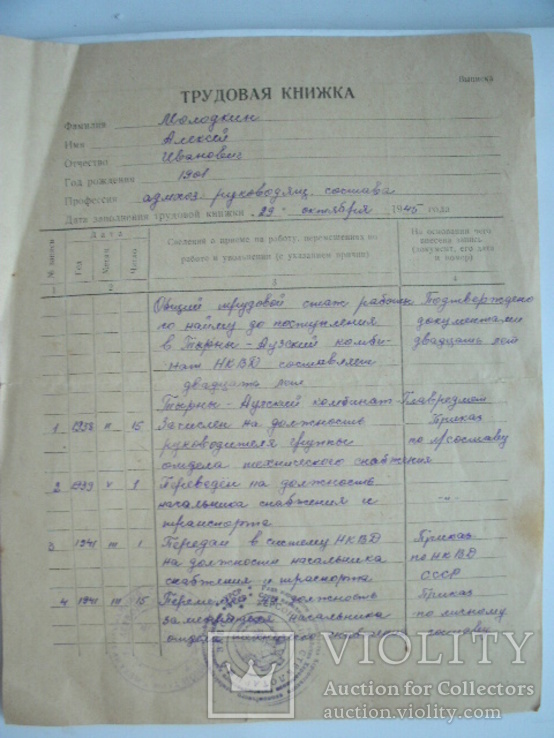 Выписка
ТРУДОВАЯ КНИЖКА
Фамилия Молодкин
Имя Алексей
Отчество Иванович
Год рождения 1901
Профессия админоз. руководящ. состава
Дата заполнения трудовой книжки „29“ октября 1945 года
№ записи
Дата
Год
Месяц
Число
Сведения о приеме на работу, перемещениях по
работе и увольнении (с указанием причин)
На основании чего
внесена запись
(документ, его дата
и номер)
1 2 3 4
Общий трудовой стаж работы Подтверждено
по найму до поступления документами
в Тырны-Аузский комби- двадцать лет
нат НКВД составляет
двадцать лет
Тырны-Аузский комбинат Главредмет
1 1938 II 15 Зачислен на должность Приказ
руководителя группы по л/составу
отдела технического снабжения
2 1939 V 1 Переведен на должность
начальника снабжения и -"-
транспорта
3 1941 III 1 Передан в систему НКВД Приказ
на должность начальника по НКВД
снабжения и траспорта СССР
4 1941 III 15 на должность Приказ
заместителя начальника по личному
отдела составу
VIOLITY
Auction for Collectors
auction.violity.com